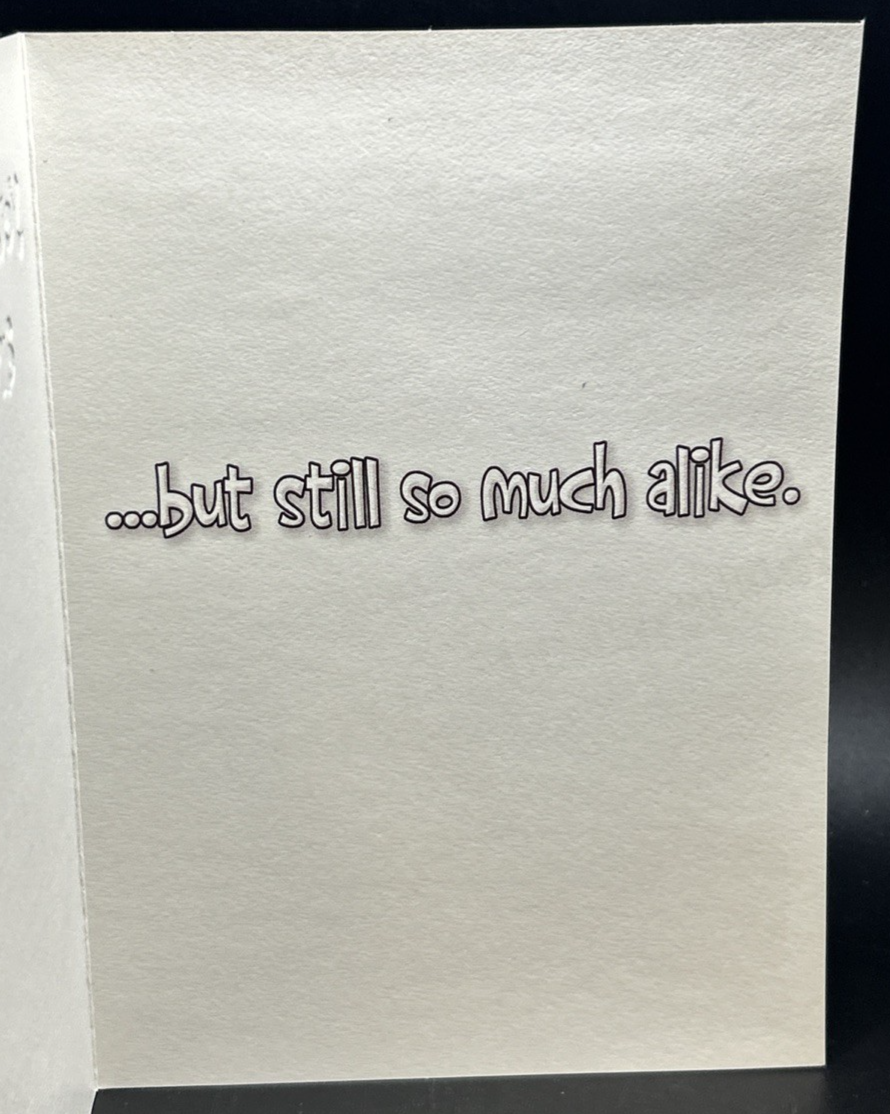 ...but still so much alike.